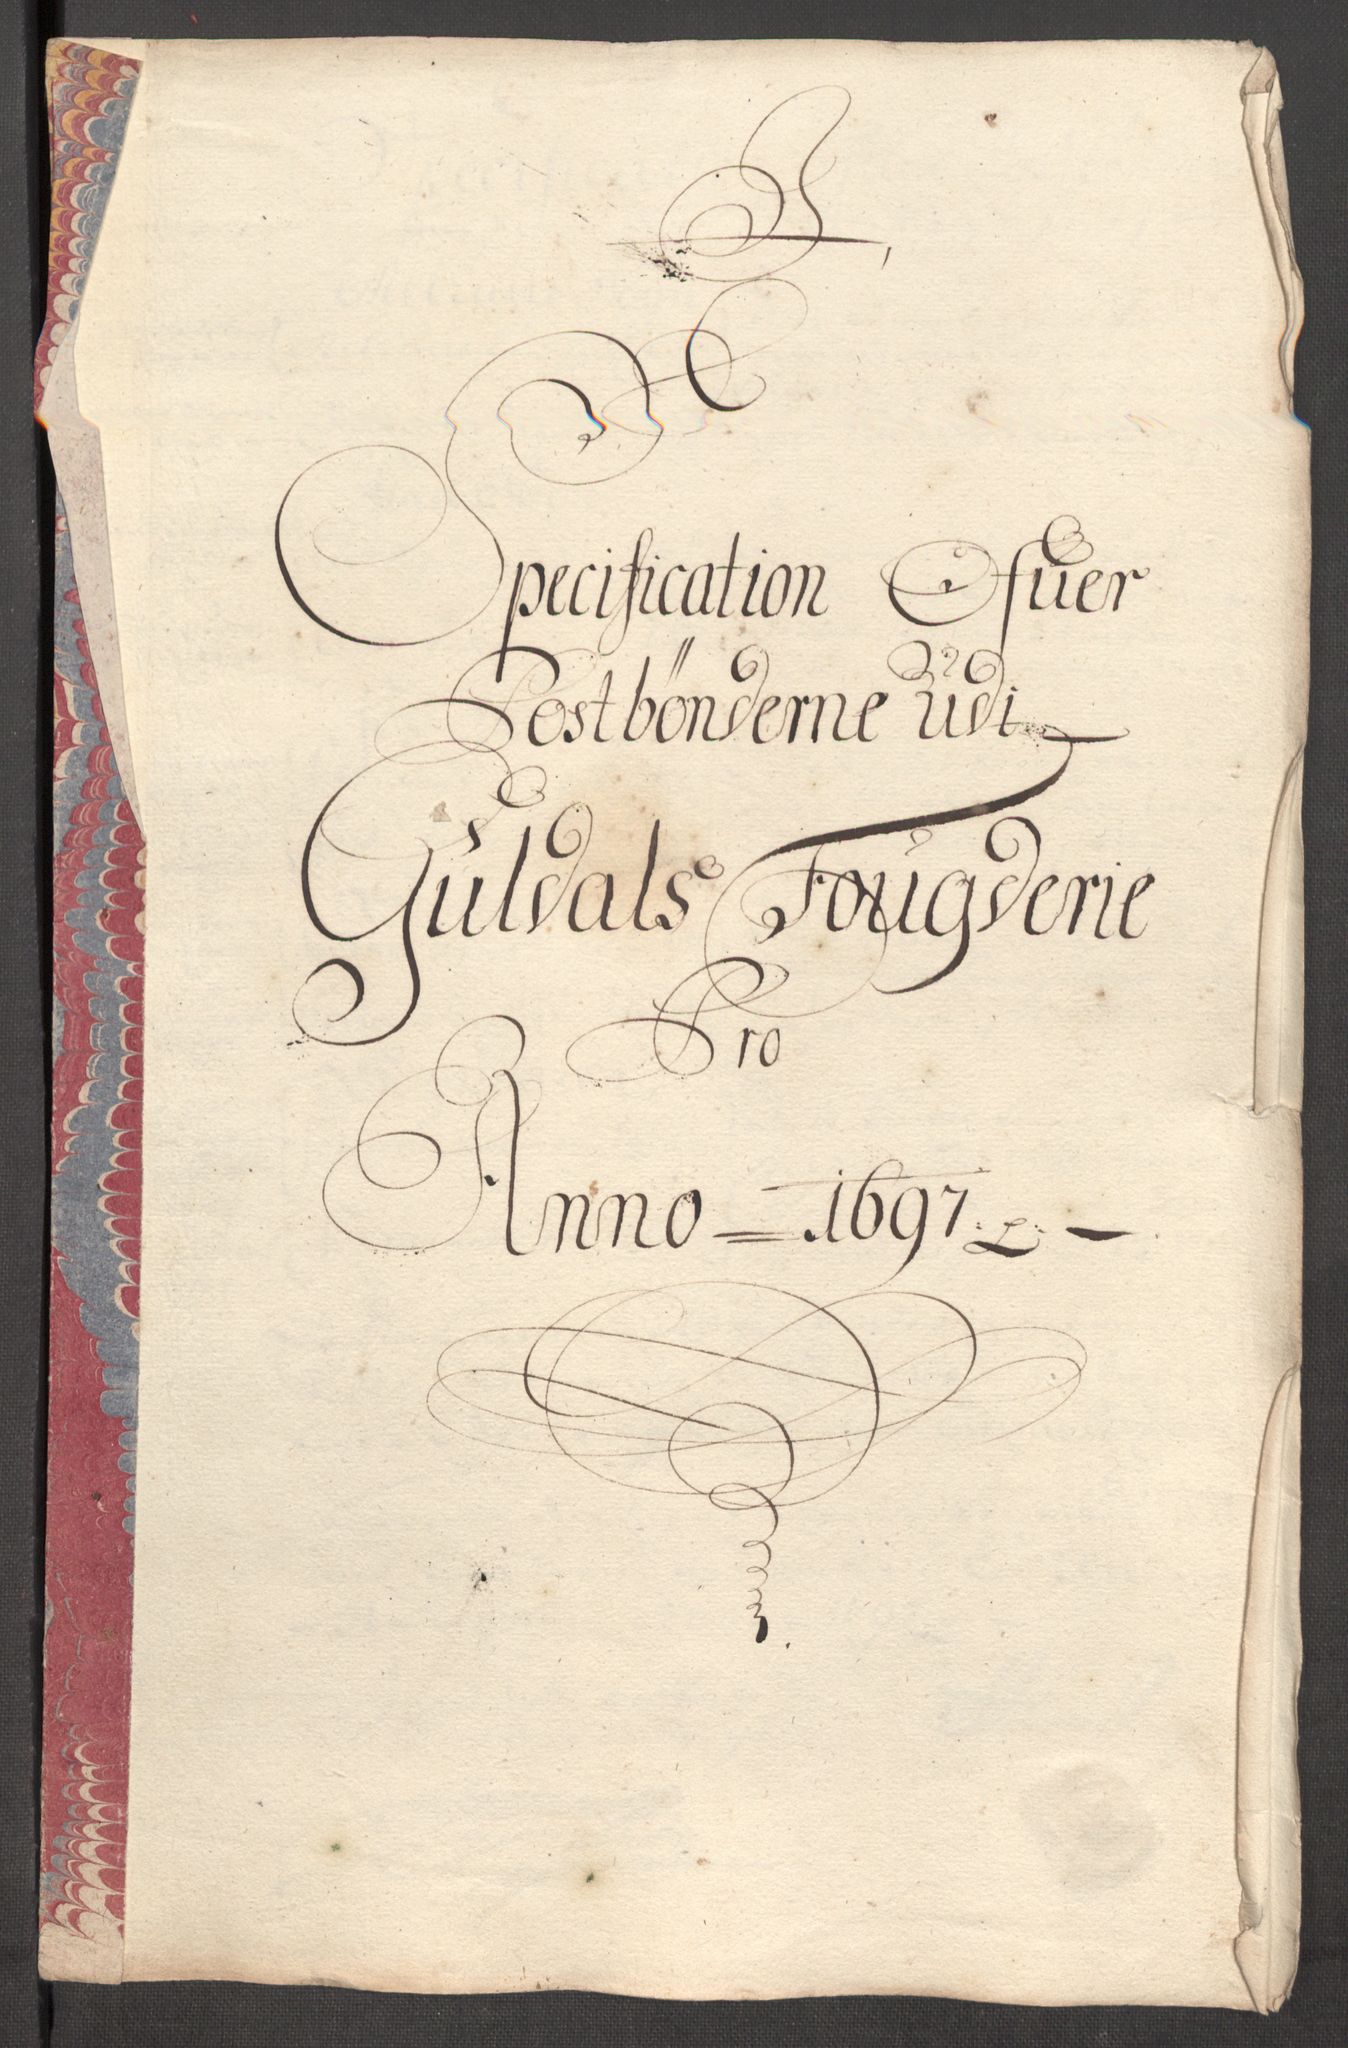 Specification Ofuer
Postbönderne udi
Guldals Fougderie
Pro
Anno 1697